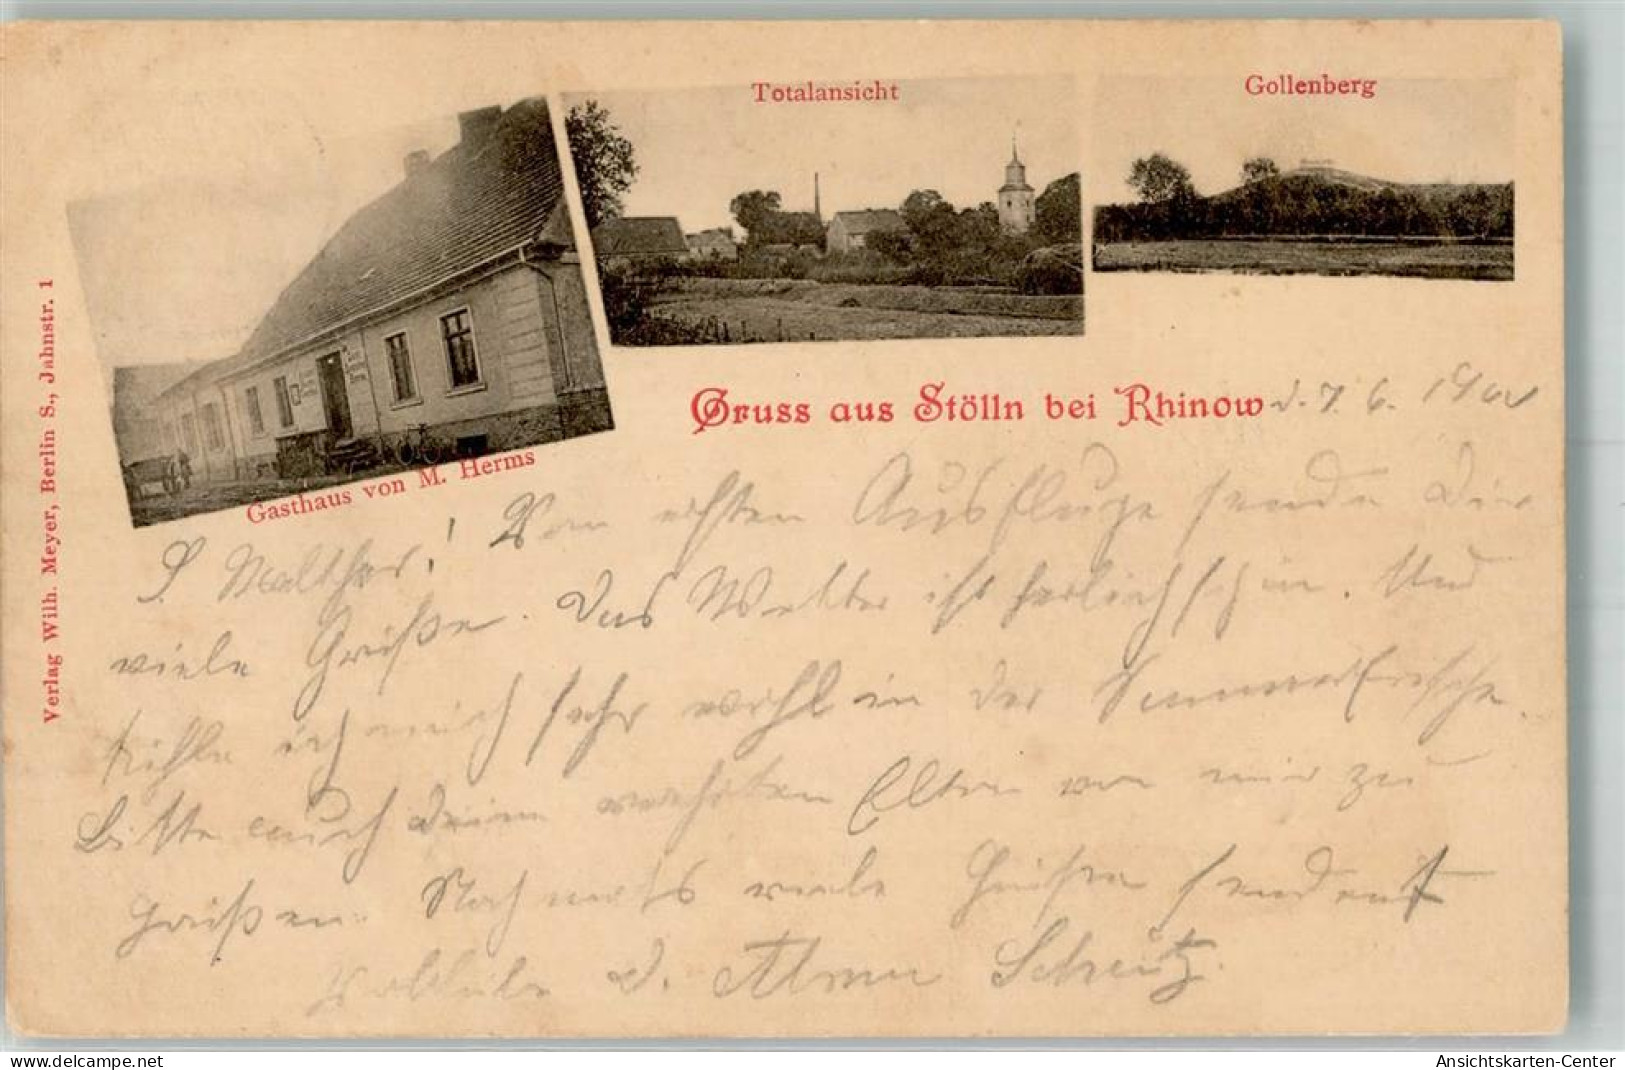 Totalansicht
Gollenberg
Gasthaus von M. Herms
Verlag Wilh. Meyer, Berlin S., Jahnstr. 1
Gruss aus Stölln bei Rhinow d. 7. 6. 190
L. Walther! Vom ersten Ausfluge sende Dir
viele Grüße. Das Wetter ist herlich schön. Und
fühle ich mich sehr wohl in der Sommerfrische.
Bitte auch Deinen verehrten Eltern von mir zu
grüßen. Nochmals viele Grüße sendent
D. Schütz.
Ansichtskarten-Center
www.delcampe.net